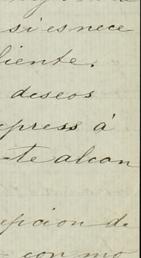 si es nece
liente.
deseos
xpress á
te alcan
epcion de
con mo